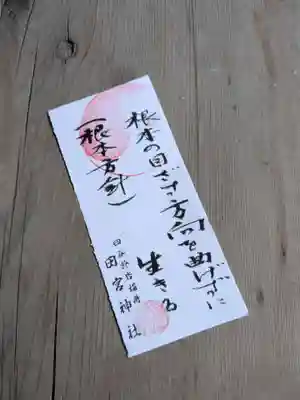 根本の目ざす方向を曲げずに
生きる
（根本方針）
四谷於岩稲荷
田宮神社